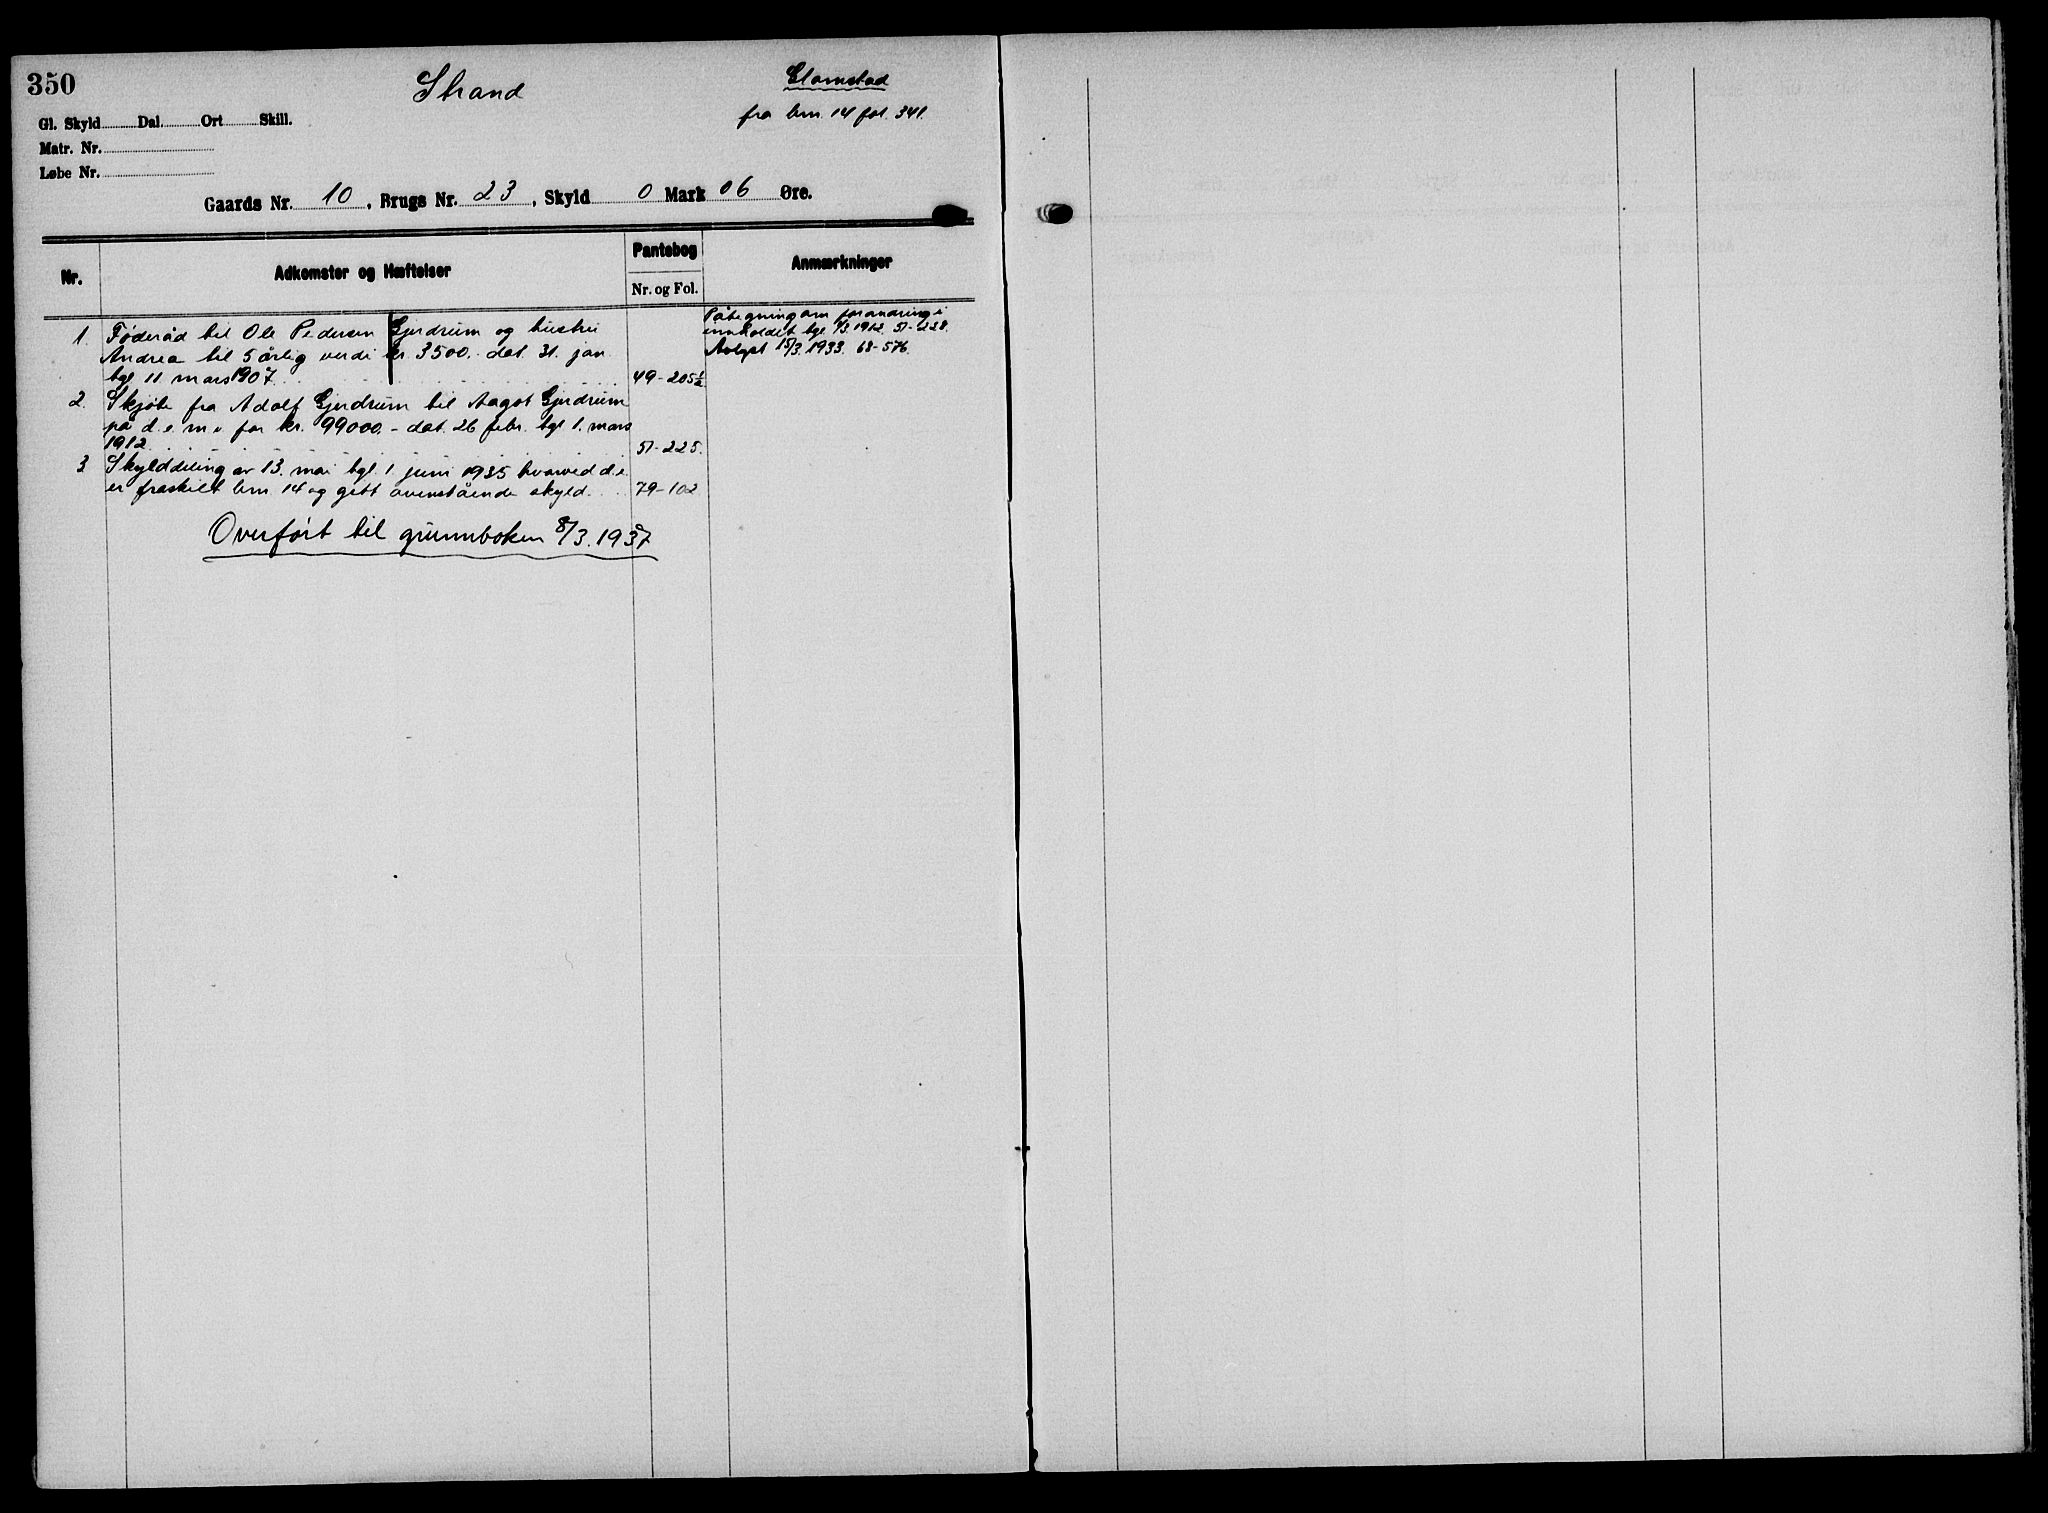 350
Strand
Glomstad
fra brn. 14 fol. 341.
Gl. Skyld Dal. Ort Skill.
Matr. Nr.
Løbe Nr.
Gaards Nr. 10, Brugs Nr. 23, Skyld 0 Mark 06 Øre.
Nr.
Adkomster og Hæftelser
Pantebog
Nr. og Fol.
Anmærkninger
1. Føderåd til Ole Pedersen Gjerdrum og hustru
Andrea til 5 årlig verdi kr. 3500.- dat. 31. jan
tgl. 11 mars 1907 49-205½
Påtegning om forandring i
innholdet tgl. 1/3.1912. 51-228.
Avlyst 15/3.1933. 68-576.
2. Skjøte fra Adolf Gjerdrum til Aagot Gjerdrum
på d. e. m. v for kr. 99000.- dat. 26 febr. tgl 1. mars
1912 51-225.
3 Skylddeling av 13. mai tgl. 1. juni 1935 hvorved d. e.
er fraskilt brn 14 og gitt ovenstående skyld. 79-102
Overført til grunnboken 8/3.1937